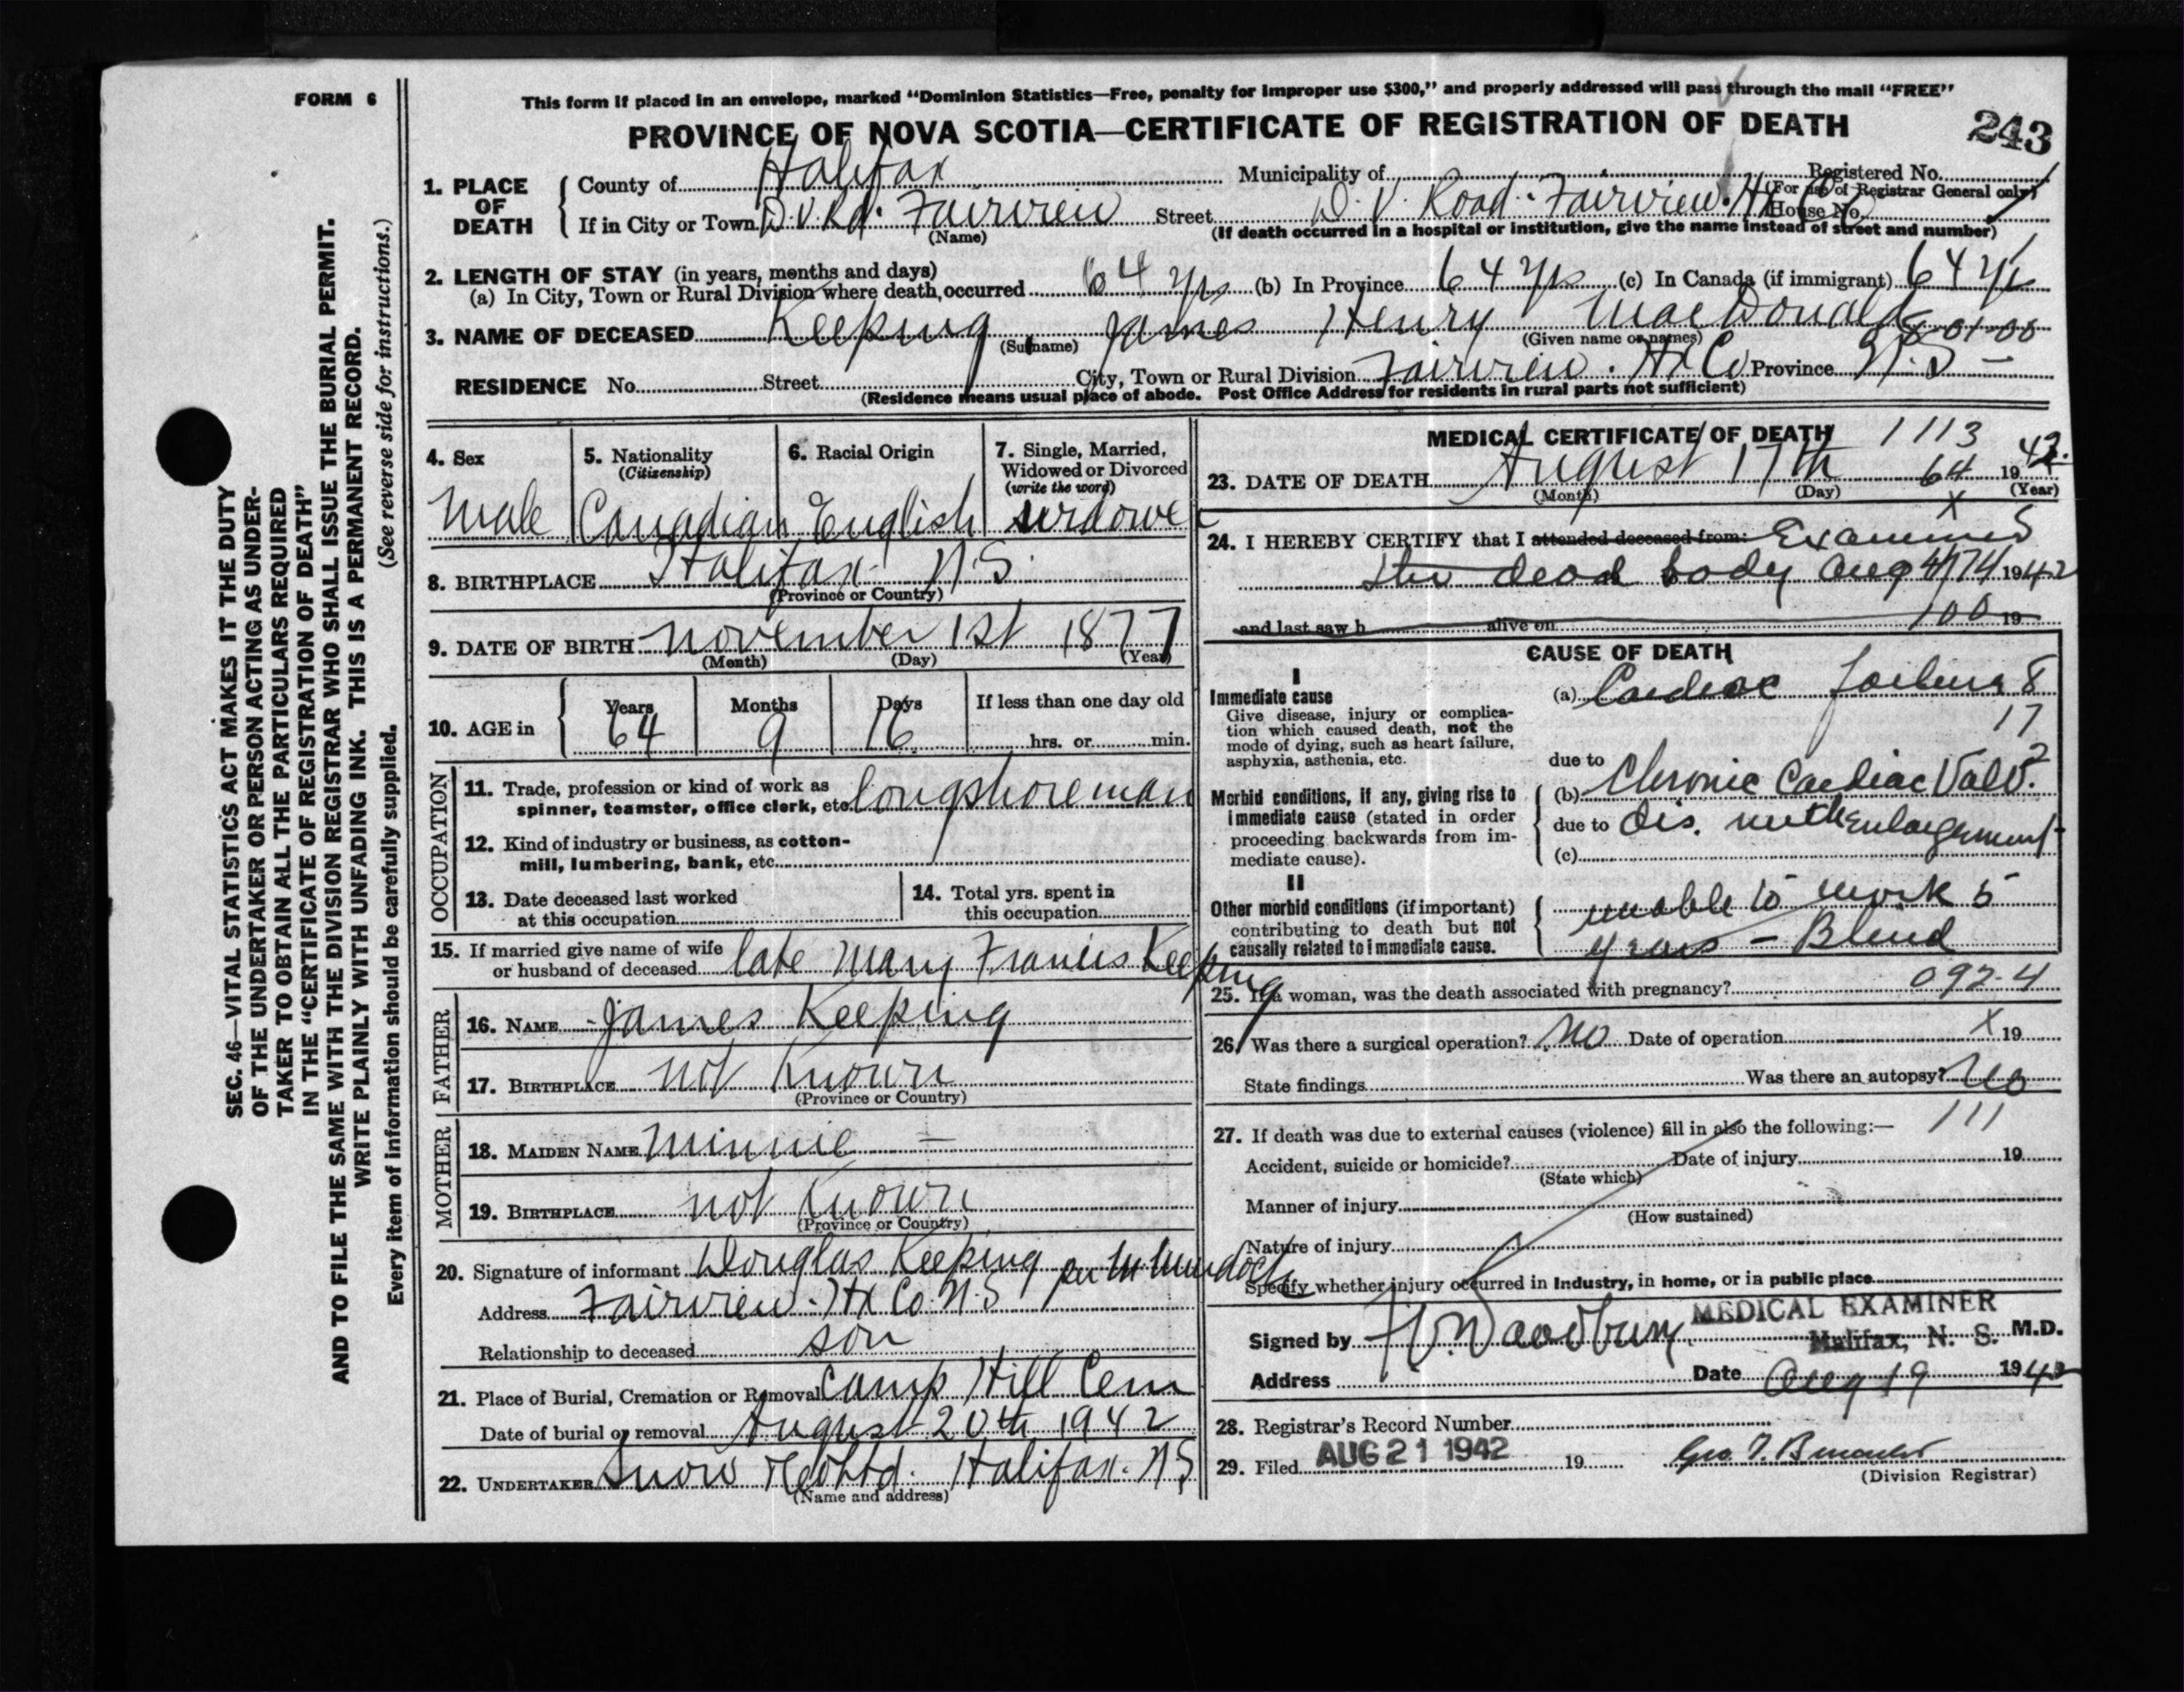 FORM 6
This form if placed in an envelope, marked "Dominion Statistics—Free, penalty for improper use $300," and properly addressed will pass through the mail "FREE"
PROVINCE OF NOVA SCOTIA—CERTIFICATE OF REGISTRATION OF DEATH
243
1. PLACE OF DEATH
County of Halifax Municipality of Registered No.
(For use of Registrar General only)
If in City or Town D.V. Rd. Fairview Street D. V. Road. Fairview. Hx Co House No.
(Name) (If death occurred in a hospital or institution, give the name instead of street and number)
2. LENGTH OF STAY (in years, months and days)
(a) In City, Town or Rural Division where death occurred 64 yrs (b) In Province 64 yrs (c) In Canada (if immigrant) 64 yrs
3. NAME OF DECEASED Keeping James Henry MacDonald
(Surname) (Given name or names) 8-01-00
RESIDENCE No. Street City, Town or Rural Division Fairview. Hx Co Province N.S —
(Residence means usual place of abode. Post Office Address for residents in rural parts not sufficient)
4. Sex Male
5. Nationality (Citizenship) Canadian
6. Racial Origin English
7. Single, Married, Widowed or Divorced (write the word) widower
8. BIRTHPLACE Halifax N.S.
(Province or Country)
9. DATE OF BIRTH November 1st 1877
(Month) (Day) (Year)
10. AGE in Years 64 Months 9 Days 16 If less than one day old
hrs. or min.
OCCUPATION
11. Trade, profession or kind of work as spinner, teamster, office clerk, etc longshoreman
12. Kind of industry or business, as cotton-mill, lumbering, bank, etc.
13. Date deceased last worked at this occupation
14. Total yrs. spent in this occupation
15. If married give name of wife or husband of deceased late Mary Francis Keeping
FATHER
16. NAME James Keeping
17. BIRTHPLACE not known
(Province or Country)
MOTHER
18. MAIDEN NAME Minnie —
19. BIRTHPLACE not known
(Province or Country)
20. Signature of informant Douglas Keeping per M Murdoch
Address Fairview. Hx Co. N.S
Relationship to deceased son
21. Place of Burial, Cremation or Removal Camp Hill Cem
Date of burial or removal August 20th 1942
22. UNDERTAKER Snow & Co Ltd. Halifax. N.S
(Name and address)
MEDICAL CERTIFICATE OF DEATH 1113
23. DATE OF DEATH August 17th 64 1942.
(Month) (Day) (Year)
X
24. I HEREBY CERTIFY that I attended deceased from: Examined
the dead body Aug 17 1942
and last saw h alive on 100 19
CAUSE OF DEATH
I
Immediate cause
Give disease, injury or complication which caused death, not the mode of dying, such as heart failure, asphyxia, asthenia, etc.
(a) Cardiac Failure 8
17
due to
Morbid conditions, if any, giving rise to immediate cause (stated in order proceeding backwards from immediate cause).
(b) Chronic Cardiac Valv. 2
due to Dis. with Enlargement
(c)
II
Other morbid conditions (if important) contributing to death but not causally related to immediate cause.
unable to work 5
years — Blind
25. If a woman, was the death associated with pregnancy? 092-4
26. Was there a surgical operation? No Date of operation X 19
State findings Was there an autopsy? No
111
27. If death was due to external causes (violence) fill in also the following:—
Accident, suicide or homicide? Date of injury 19
(State which)
Manner of injury
(How sustained)
Nature of injury
Specify whether injury occurred in Industry, in home, or in public place
MEDICAL EXAMINER
Signed by Halifax, N. S. M.D.
Address Date Aug 19 1942
28. Registrar's Record Number
29. Filed AUG 21 1942 19
(Division Registrar)
SEC. 46—VITAL STATISTICS ACT MAKES IT THE DUTY
OF THE UNDERTAKER OR PERSON ACTING AS UNDER-
TAKER TO OBTAIN ALL THE PARTICULARS REQUIRED
IN THE "CERTIFICATE OF REGISTRATION OF DEATH"
AND TO FILE THE SAME WITH THE DIVISION REGISTRAR WHO SHALL ISSUE THE BURIAL PERMIT.
WRITE PLAINLY WITH UNFADING INK. THIS IS A PERMANENT RECORD.
(See reverse side for instructions.)
Every item of information should be carefully supplied.